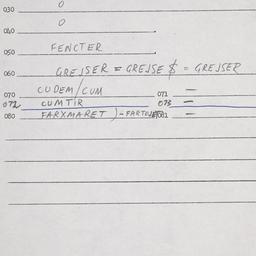 030 0
040 0
050 FENCTER
060 GREJSER = GREJSE $ = GREJSER
070 CUDEM/CUM 071 —
072 CUMTIR 073 —
080 FARXMARET ) -